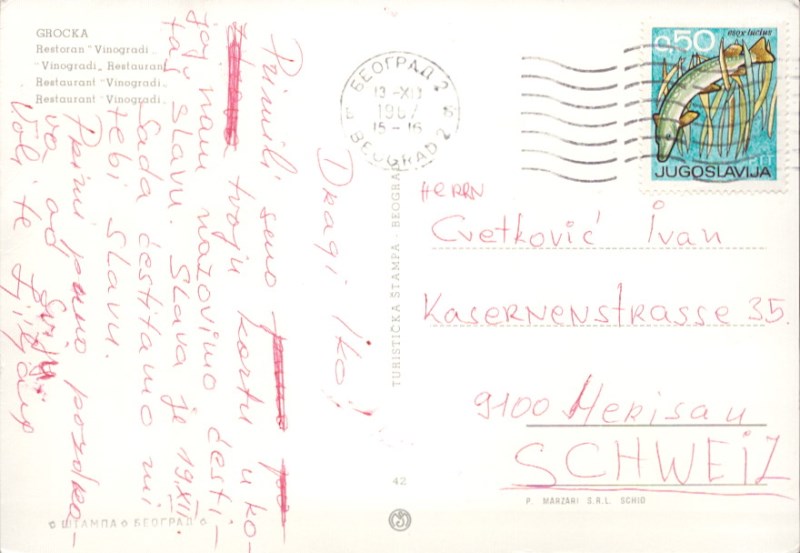 GROCKA
Restoran "Vinogradi„
"Vinogradi„ Restaurant
Restaurant "Vinogradi„
Restaurant "Vinogradi„
Dragi Iko!
Primili smo
tvoju kartu u ko-
joj nam nazovimo česti-
taš slavu. Slava je 19.XII.
Sada čestitamo mi
tebi Slavu.
Primi puno pozdra-
va od sviju
Voli te
TURISTIČKA ŠTAMPA - BEOGRAD
42
ШТАМПА БЕОГРАД
БЕОГРАД 2
13-XII
1967
15-16
BEOGRAD 2
esox lucius
0,50
JUGOSLAVIJA
HERRN
Cvetković Ivan
Kasernenstrasse 35.
9100 Herisau
SCHWEIZ
P. MARZARI S.R.L. SCHIO